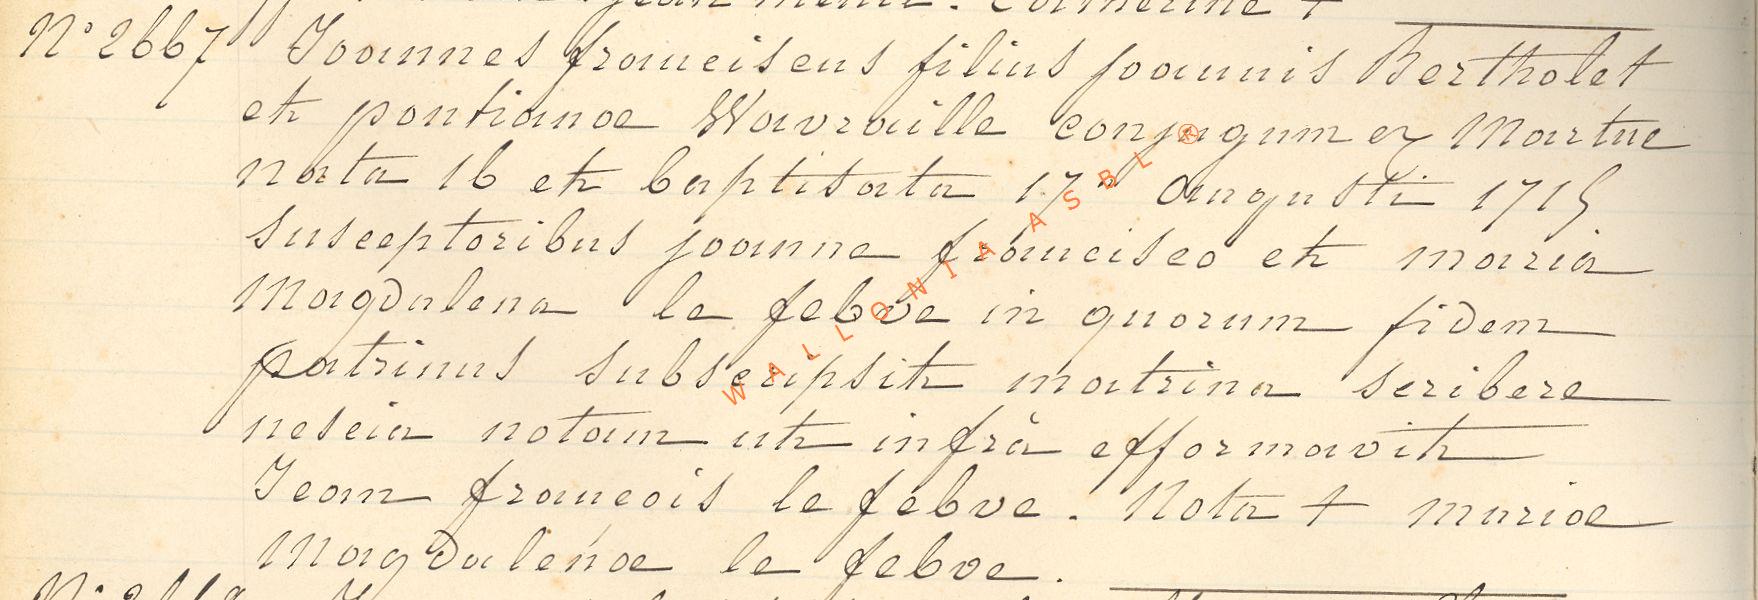 Catherine +
N° 2667 Joannes franciscus filius joannis Bertholet
et pontianae Wavraille conjugum ex Martue
nata 16 et baptisata 17a Augusti 1715
susceptoribus joanne francisco et maria
Magdalena le febve in quorum fidem
patrinus subscripsit matrina scribere
nescia notam ut infrà efformavit
Jean francois le febve. Nota + mariae
Magdalenae le febve.
WALLONIA ASBL ®